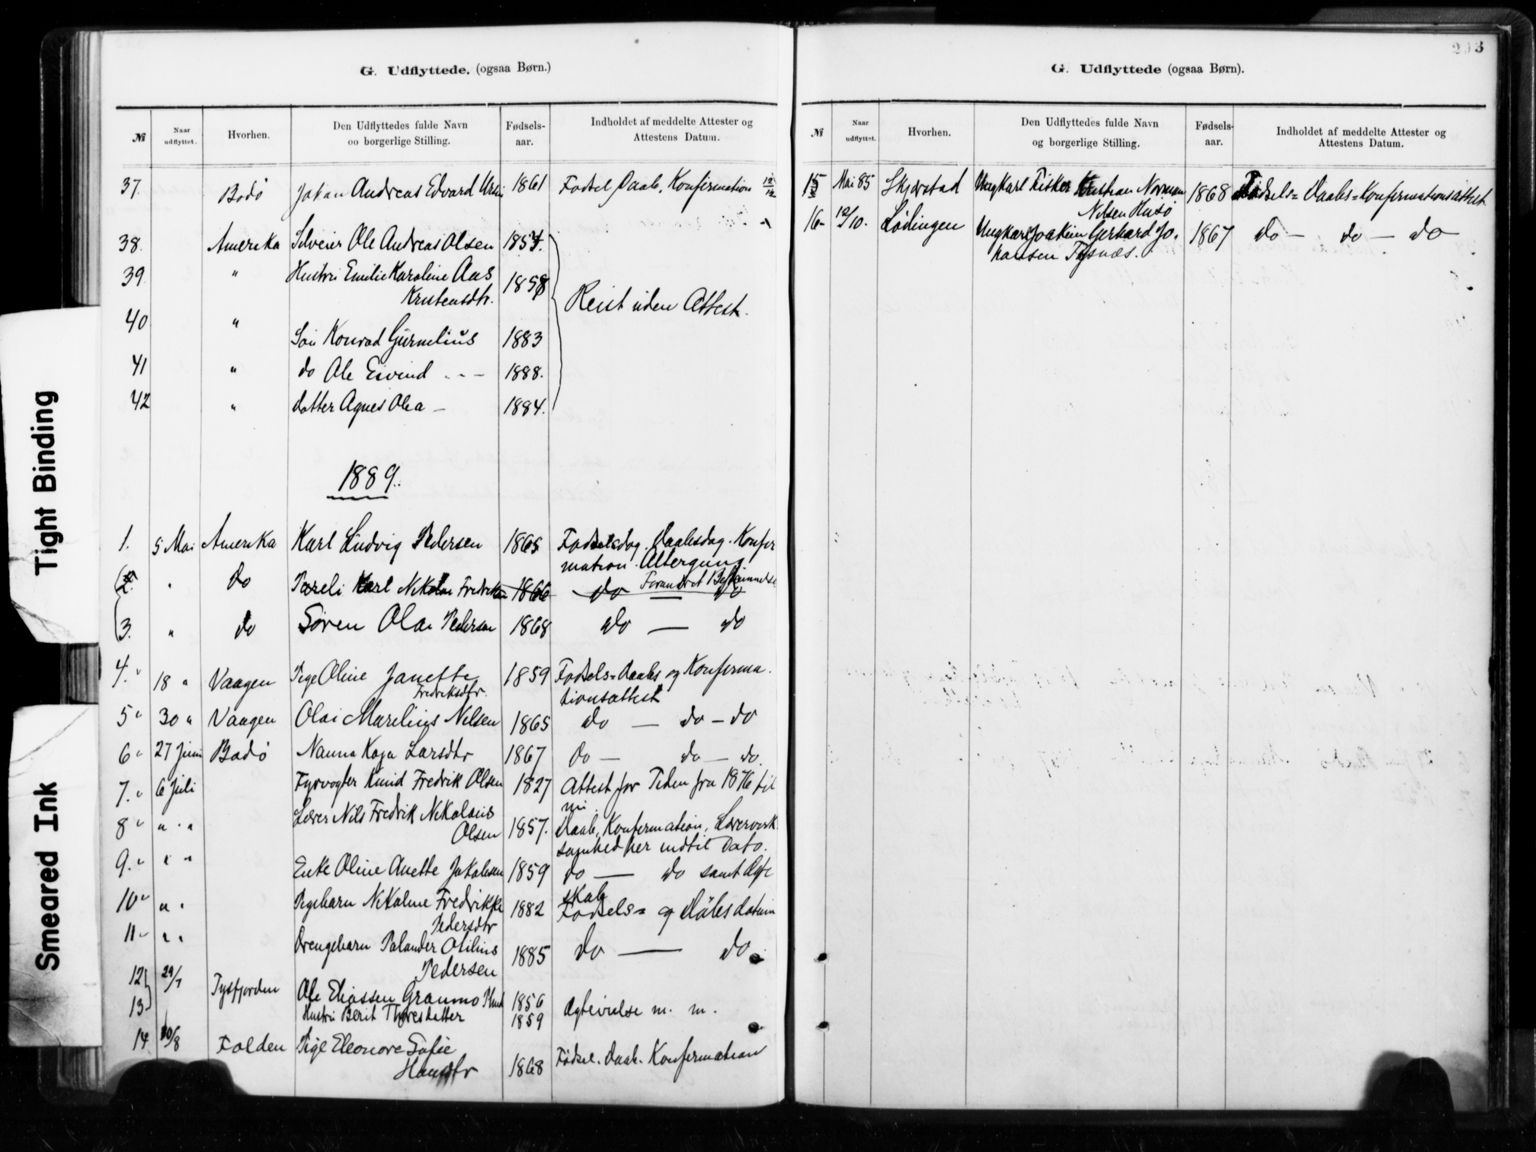 G. Udflyttede. (ogsaa Børn.)
№ Naar udflyttet. Hvorhen. Den Udflyttedes fulde Navn oo borgerlige Stilling. Fødsels-aar. Indholdet af meddelte Attester og Attestens Datum.
37. Bodø Johan Andreas Edvard 1861 Fødsel, Daab, Konfirmation
38. Amerika Ole Andreas Olsen 1854.
39. " Hustru Emilie Karoline Aas
Kristensdtr. 1858
Reist uden Attest.
40 "
Søn Konrad 1883
41 " do Ole Eivind - - - 1888.
42 " Datter Agnes Olea - 1884.
1889.
1. 5 Mai Amerika Karl Ludvig Pedersen 1865 Fødselsdag. Daabsdag. Konfir
mation. Altergang
2. " do Karl Nikolai 1866 do Forandret Bestemmelse
3. " do Søren Olai Pedersen 1868 do — do
4. " 18 " Vaagen Pige Oline Janette 1859 Fødsels- Daabs og Konfirma-
Fredriksdtr. tionsattest
5 " 30 " Vaagen Olai Marelius Nilsen 1865 do — do - do
6 " 27 Juni Bodø Nanna Kaja Larsdtr 1867 do — do — do.
7. " 6 Juli Fyrvogter Knud Fredrik Olsen 1827 Attest for Tiden fra 1876 til
nu.
8 " " " Lærer Nils Fredrik Nikolaus
Olsen 1857. Daab, Konfirmation, Lærervirk
somhed her indtil Dato.
9. " " " Enke Oline Anette 1859 do — do samt Ægte
skab
10 " " " Pigebarn Nikoline Fredrikke
Pedersdtr 1882 Fødsels- og Daabsdatum
11 " " " Drengebarn Palander Otilius
Pedersen 1885 do — do
12 29/7 Tysfjorden Ole Eliassen Graumo 1856
13 Hustru Berit 1859 Ægtevielse m. m.
14 Folden Pige Eleonore Sofie
Hansdtr 1868 Fødsel. Daab. Konfirmation
203
G. Udflyttede (ogsaa Børn).
№ Naar udflyttet. Hvorhen. Den Udflyttedes fulde Navn og borgerlige Stilling. Fødsels-aar. Indholdet af meddelte Attester og Attestens Datum.
15 Mai 85 Skjerstad Ungkarl Fisker Kristian Norman
Nilsen Husø 1868 Fødsels- Daabs- Konfirmationsattest
16- 12/10. Lødingen Ungkarl Joakim Gerhard Jo-
hansen Tysnæs. 1867 do — do — do
Tight Binding
Smeared Ink